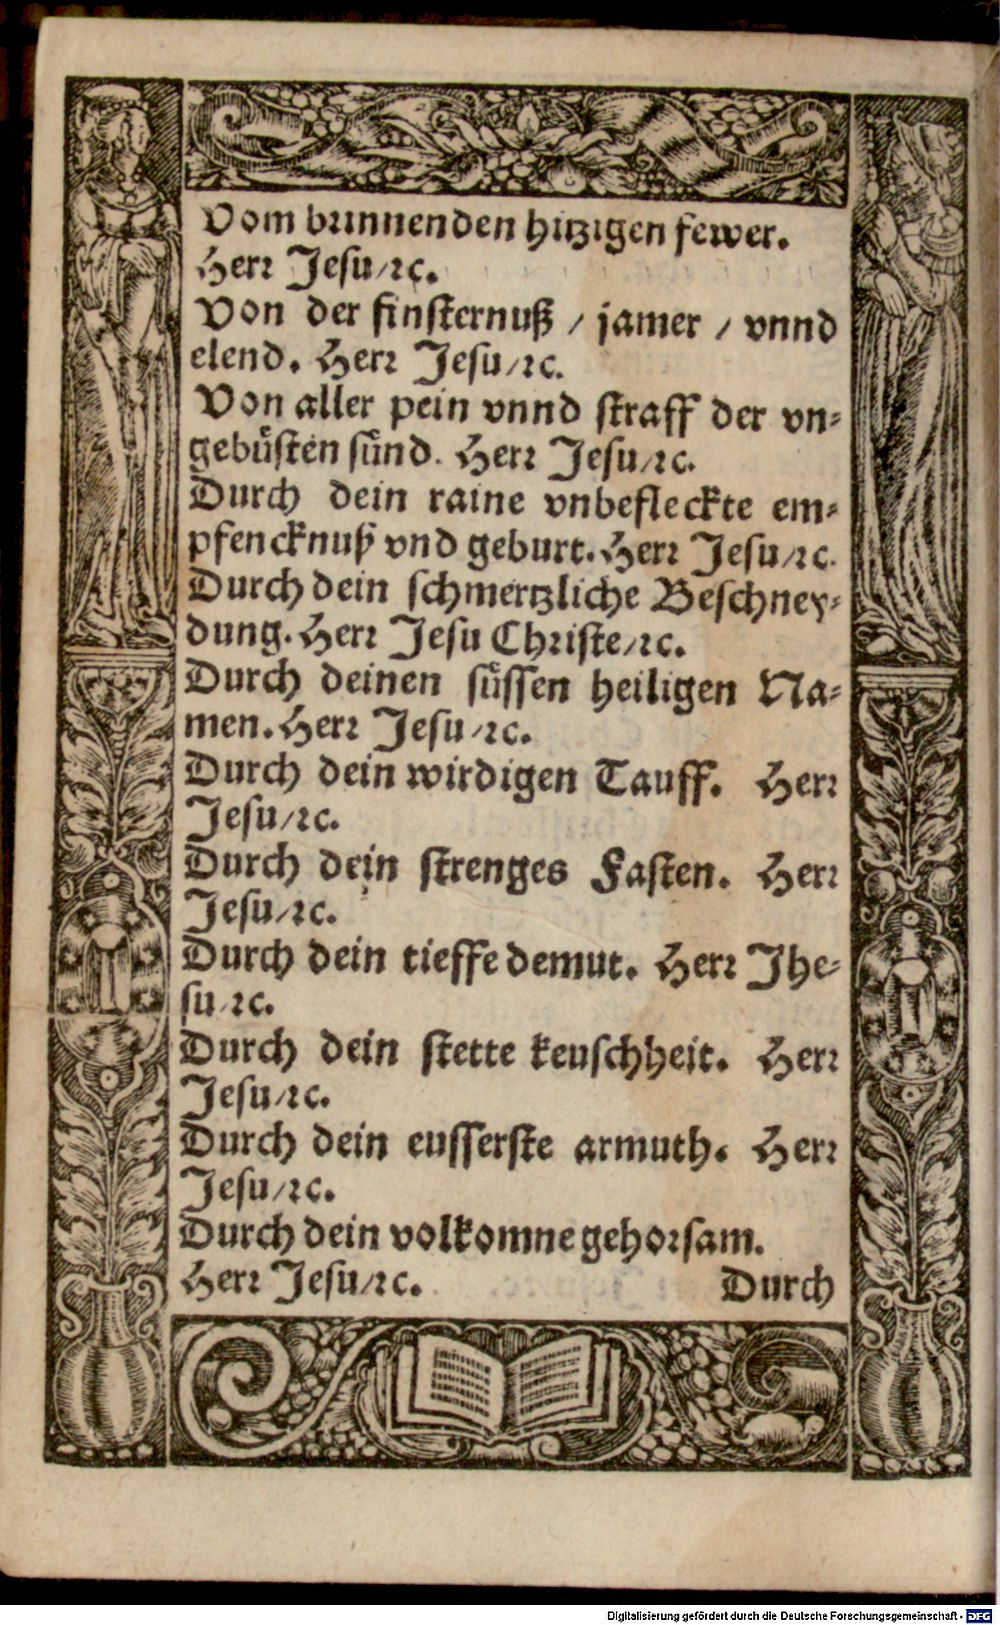 Vom brinnenden hitzigen fewer.
Herr Jesu/ꝛc.
Von der finsternuß / jamer / vnnd
elend. Herr Jesu/ꝛc.
Von aller pein vnnd straff der vn⸗
gebuͤsten suͤnd. Herr Jesu/ꝛc.
Durch dein raine vnbefleckte em⸗
pfencknuß vnd geburt. Herr Jesu/ꝛc.
Durch dein schmertzliche Beschney⸗
dung. Herr Jesu Christe/ꝛc.
Durch deinen suͤssen heiligen Na⸗
men. Herr Jesu/ꝛc.
Durch dein wirdigen Tauff. Herr
Jesu/ꝛc.
Durch dein strenges Fasten. Herr
Jesu/ꝛc.
Durch dein tieffe demut. Herr Jhe⸗
su/ꝛc.
Durch dein stette keuschheit. Herr
Jesu/ꝛc.
Durch dein eusserste armuth. Herr
Jesu/ꝛc.
Durch dein volkomne gehorsam.
Herr Jesu/ꝛc. Durch
Digitalisierung gefördert durch die Deutsche Forschungsgemeinschaft - DFG